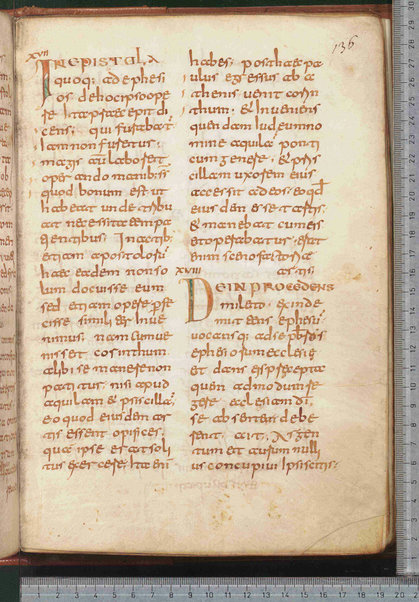 136
XVII
IN EPISTOLA
quoq; ad ephesi
os. de hoc ipso ope
re ita praecepit di
cens; qui furabat
iam non furetur.
magis aut laboret
operando manibus
quod bonum est ut
habeat unde tribu
at necessitatem pa
tientibus; In actib;
etiam apostoloru
haec eadem non so
lum docuisse eum
sed etiam opere perfe
cisse similit inue
nimus. nam cum ue
nisset corinthum.
alibi se manere non
patitur. nisi apud
aquilam & priscilla.
eo quod eiusdem ar
tis essent opifices.
qua ipse erat soli
tus exercere. ita eni
habes; post haec pa
ulus egressus ab a
thenis uenit corin
thum. & inueniens
quendam iudeum no
mine aquila ponti
cum genere. & pris
cillam uxorem eius
accessit ad eos. eo qd
eiusdem esset artis.
& maneb at cum eis
et operabatur. erat
enim scenofactoriae
artis.
XVIII
DEIN PROCEDENS
mileto. exinde
mittens ephesu.
uocansq; ad se presbros
ephesiorum ecclesie
et dans eis precepta
quem admodum re
gere ecclesiam di.
se absente debe
rent. ait; Argen
tum et aurum nulli
us concupiui ipsi scitis.